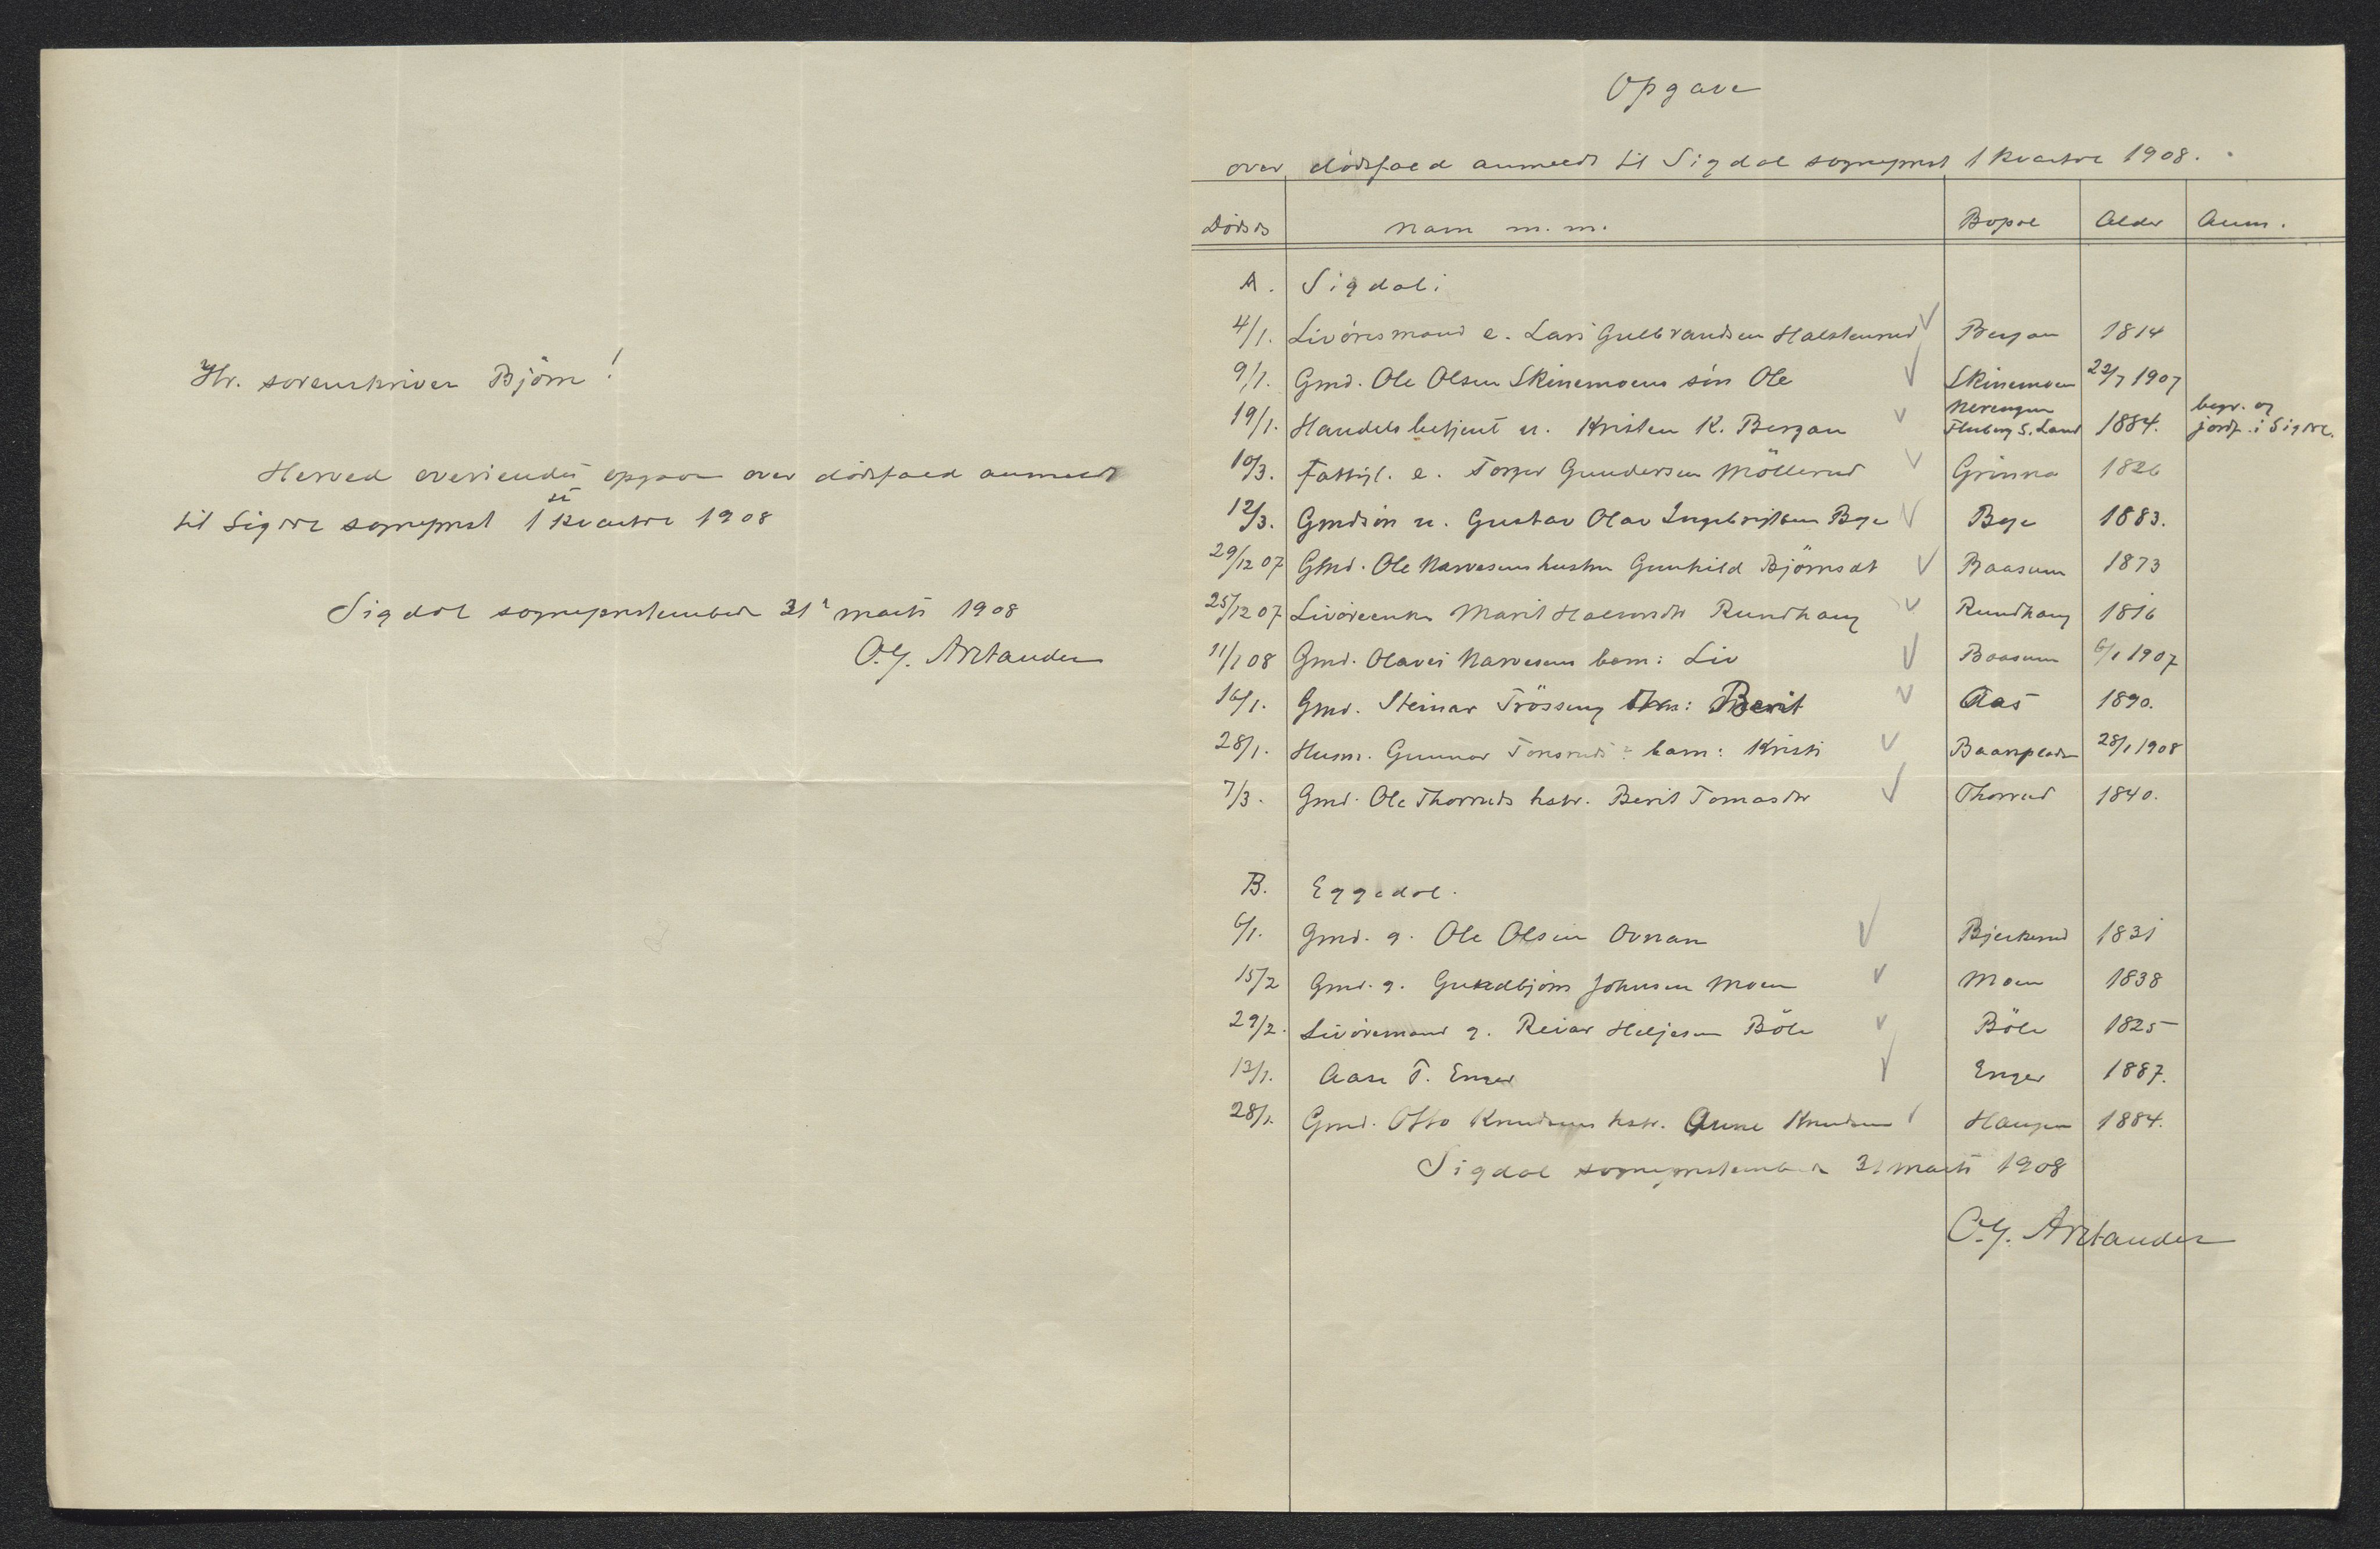 Hr. sorenskriver Björn!
Herved oversendes opgave over dödsfald anmeldt
til Sigdal sogneprest 1ste kvartal 1908
Sigdal sogneprestembede 31' marts 1908
O.G. Arztander
Opgave
over dödsfald anmeldt til Sigdal sogneprest 1 kvartal 1908.
Dödsds Navn m.m. Bopæl Alder Anm.
A. Sigdal:
4/1. Livöresmand e. Lars Gulbrandsen Halstenrud Bergan 1814
9/1. Gmd. Ole Olsen Skinemoens sön Ole Skinemoen 22/7 1907
19/1. Handelsbetjent u. Kristen K. Bergan Nerengen Fluberg S. Land 1884. begr. og jordf. i Sigdal.
10/3. Fattigl. e. Torger Gundersen Möllerud Grinna 1826
12/3. Gmdsön u. Gustav Olav Ingebrigtsen Bye Bye 1883.
29/12 07 Gmd. Ole Narvesens hustru Gunhild Björnsdt Baasum 1873
25/12 07 Livöreenke Marit Halvorsdtr Rundhaug Rundhaug 1816
11/1 08 Gmd. Olaves Narvesens barn: Liv Baasum 6/1 1907
16/1. Gmd. Steinar Frössaug : Berit Aas 1890.
28/1. Husm. Gunnar Tonsruds barn: Kristi Baanplads 28/1 1908
7/3. Gmd. Ole Thorruds hstr. Berit Tomasdtr Thorrud 1840.
B. Eggedal.
6/1. Gmd. g. Ole Olsen Ovnan Bjerkerud 1831
15/2 Gmd. g. Gudbjörn Johnsen Moen Moen 1838
29/2. Livöremand g. Reiar Heljesen Böle Böle 1825
13/1. Aase T. Enger Enger 1887.
28/1. Gmd. Otto Knudsens hstr. Anne Knudsen Haugen 1884.
Sigdal sogneprestembede 31 marts 1908
O.G. Arztander